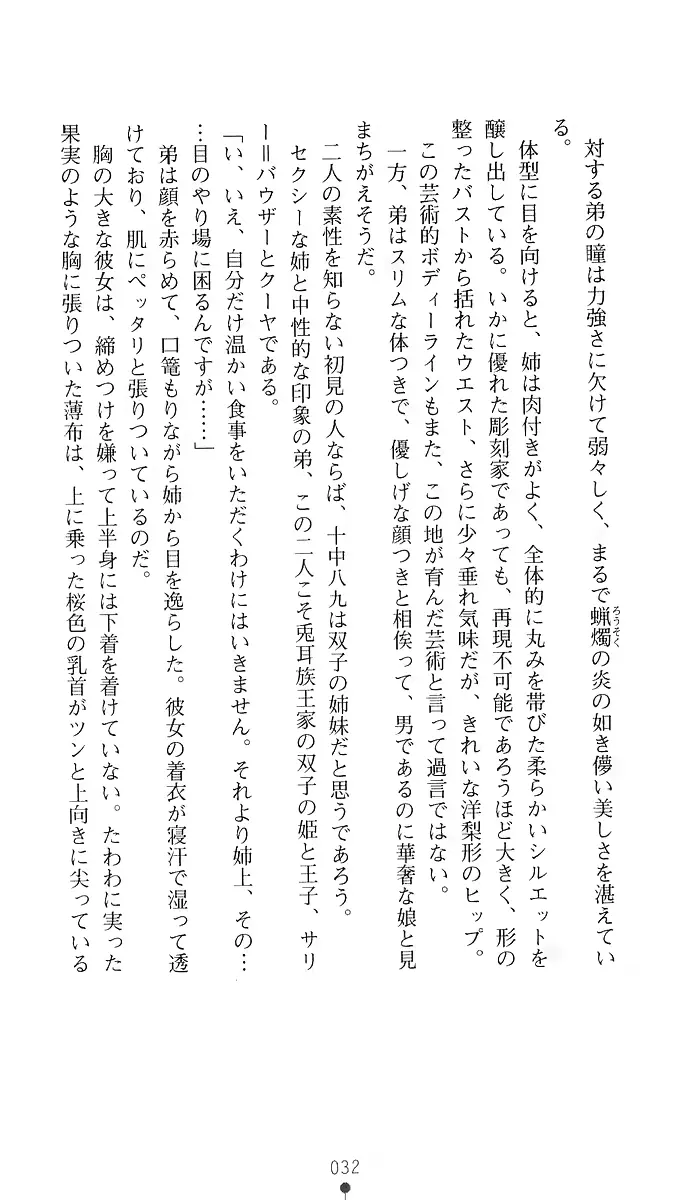 対する弟の瞳は力強さに欠けて弱々しく、まるで蝋燭の炎の如き儚い美しさを湛えてい
る。
体型に目を向けると、姉は肉付きがよく、全体的に丸みを帯びた柔らかいシルエットを
醸し出している。いかに優れた彫刻家であっても、再現不可能であろうほど大きく、形の
整ったバストから括れたウエスト、さらに少々垂れ気味だが、きれいな洋梨形のヒップ。
この芸術的ボディーラインもまた、この地が育んだ芸術と言って過言ではない。
一方、弟はスリムな体つきで、優しげな顔つきと相俟って、男であるのに華奢な娘と見
まちがえそうだ。
二人の素性を知らない初見の人ならば、十中八九は双子の姉妹だと思うであろう。
セクシーな姉と中性的な印象の弟、この二人こそ兎耳族王家の双子の姫と王子、サリ
ー=バウザーとクーヤである。
「い、いえ、自分だけ温かい食事をいただくわけにはいきません。それより姉上、その…
…目のやり場に困るんですが……」
弟は顔を赤らめて、口篭もりながら姉から目を逸らした。彼女の着衣が寝汗で湿って透
けており、肌にペッタリと張りついているのだ。
胸の大きな彼女は、締めつけを嫌って上半身には下着を着けていない。たわわに実った
果実のような胸に張りついた薄布は、上に乗った桜色の乳首がツンと上向きに尖っている
ろうそく
032